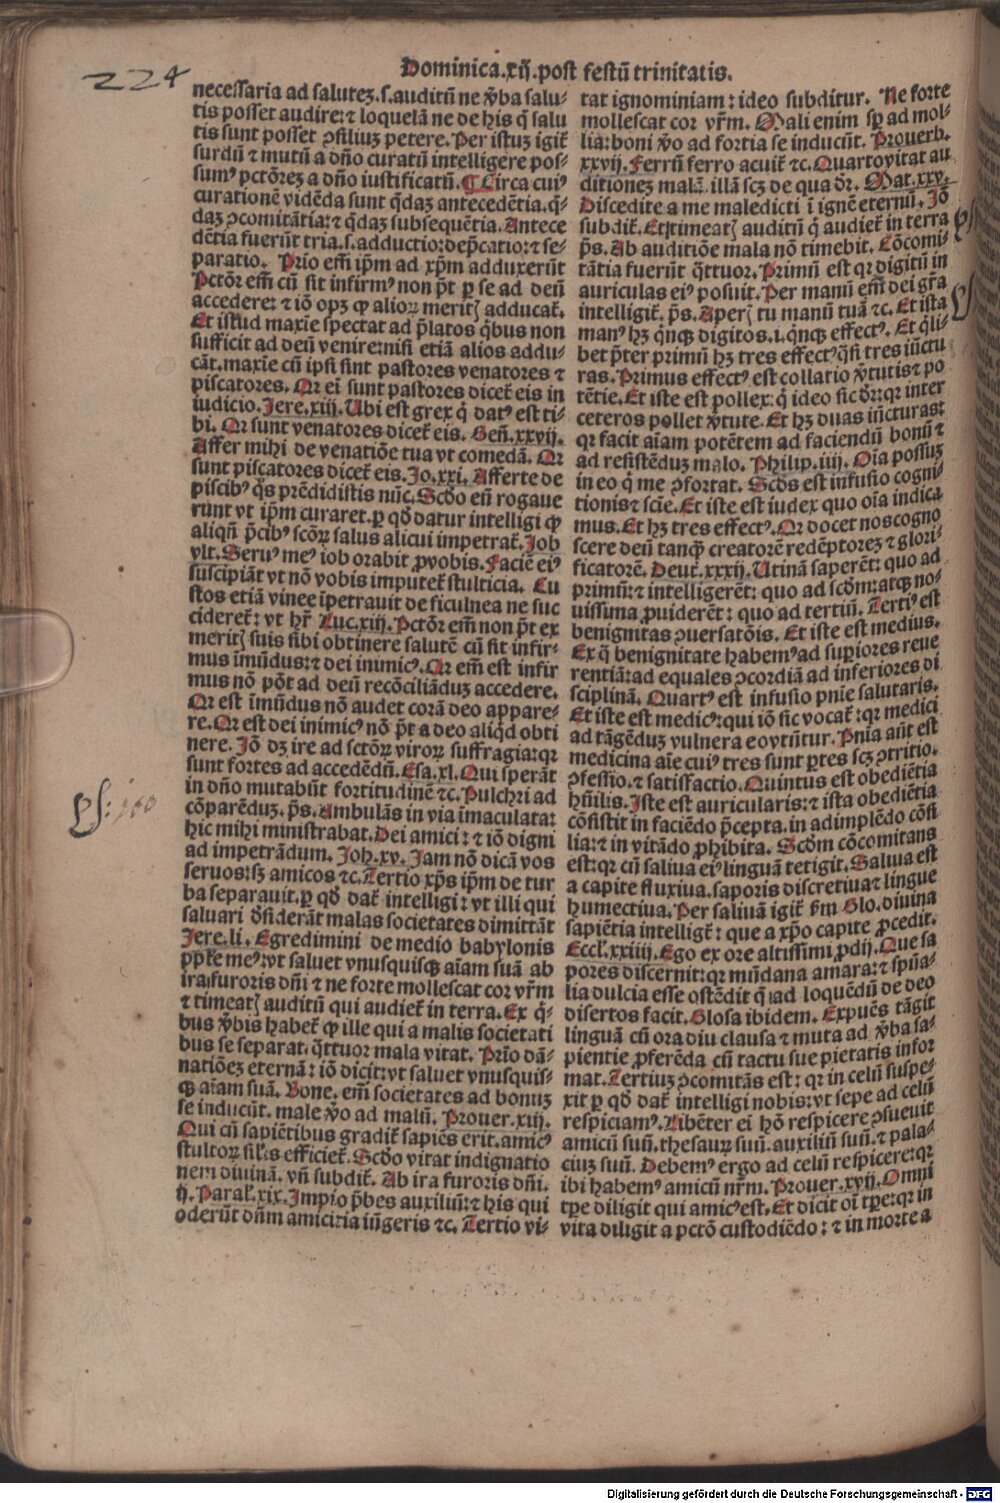 224
Dominica.xij.post festū trinitatis.
necessaria ad salutez.s.auditū ne v̄ba salu⸗
tis posset audire:⁊ loquelā ne de his q̄ salu
tis sunt posset ɔsiliuz petere.Per istuz igit᷑
surdū ⁊ mutū a dño curatū intelligere pos⸗
sumꝰ pctōrez a dño iustificatū.¶ Circa cuiꝰ
curationē vidēda sunt q̄daz antecedētia.q̄⸗
daz ɔcomitātia:⁊ q̄daz subsequētia.Antece
dētia fuerūt tria.s.adductio:dep̄catio:⁊ se⸗
paratio. Prīo em̄ ip̄m ad xp̄m adduxerūt
Pctōr em̄ cū sit infirmꝰ non p̄t ꝑ se ad deū
accedere: ⁊ iō opꝫ ꝙ alioꝝ meritꝭ adducat᷑.
Et istud maxīe spectad ad p̄latos q̄bus non
sufficit ad deū venire:nisi etiā alios addu⸗
cāt.maxīe cū ipsi sint pastores venatores ⁊
piscatores. Qꝛ ei sunt pastores dicet᷑ eis in
iudicio.Jere.xiij.Ubi est grex q̄ datꝰ est ti⸗
bi. Qꝛ sunt venatores dicet᷑ eis. Geñ.xxvij.
Affer mihi de venatiōe tua vt comedā. Qꝛ
sunt piscatores dicet᷑ eis.Jo.xxi. Afferte de
piscibꝰ q̄s prēdidistis nūc.Scḋo em̄ rogaue
runt vt ip̄m curaret.ꝑ qḋ datur intelligi ꝙ
aliqñ p̄cibꝰ scōꝝ salus alicui impetrat᷑.Job
vlt.Seruꝰ meꝰ iob orabit ꝓvobis.Faciē eiꝰ
suscipiāt vt nō vobis imputet᷑ stulticia. Cu
stos etiā vinee īpetrauit de ficulnea ne suc
cideret᷑: vt hr̄ Luc.xiij.Pctōr em̄ non p̄t ex
meritꝭ suis sibi obtinere salutē cū sit infir⸗
mus īmūdus:⁊ dei inimicꝰ.Qꝛ em̄ est infir
mus nō pōt ad deū recōciliāduz accedere.
Qꝛ est īmūdus nō audet corā deo appare⸗
re.Qꝛ est dei inimicꝰ nō p̄t a deo aliqḋ obti
nere. Jō dꝫ ire ad sctōꝝ viroꝝ suffragia:qꝛ
sunt fortes ad accedēdū.Esa.xl.Qui sperāt
in dño mutabūt fortitudinē ⁊c.Pulchri ad
cōparēduz.p̄s.Ambulās in via īmaculata:
hic mihi ministrabat.Dei amici: ⁊ iō digni
ad impetrādum. Joh.xv. Jam nō dicā vos
seruos:sꝫ amicos ⁊c.Tertio xp̄s ip̄m de tur
ba separauit.ꝑ qḋ dat᷑ intelligi: vt illi qui
saluari ḋsiderāt malas societates dimittāt
Jere.li. Egredimini de medio babylonis
pp̄le meꝰ:vt saluet vnusquisqꝫ aīam suā ab
ira furoris dñi ⁊ ne forte mollescat cor vr̄m
⁊ timeatꝭ auditū qui audiet᷑ in terra.Ex q̄⸗
bus v̄bis habet᷑ ꝙ ille qui a malis societati
bus se separat.q̄ttuor mala vitat. Prīo dā⸗
natiōez eternā: iō dicit:vt saluet vnusquis⸗
qꝫ aīam suā. Bone. em̄ societates ad bonuz
se inducūt. male v̄o ad malū. Prouer.xiij.
Qui cū sapiētibus gradit᷑ sapiēs erit.amicꝰ
stultoꝝ sil̄is efficiet᷑.Scḋo vitat indignatio
nem diuinā. vñ subdit᷑. Ab ira furoris dñi.
ij.Paral̄.xix.Impio p̄bes auxiliū:⁊ his qui
oderūt dñm amicitia iūgeris ⁊c. Tertio vi⸗
tat ignominiam: ideo subditur. Ne forte
mollescat cor vr̄m. Mali enim sꝑ ad mol⸗
lia:boni v̄o ad fortia se inducūt. Prouerb.
xxvij.Ferrū ferro acuit᷑ ⁊c.Quarto vitat au
ditionez malā. illā scꝫ de qua dr̄. Mat.xxv.
Discedite a me maledicti ī ignē eternū. Jō
subdit᷑. Et timeatꝭ auditū q̄ audiet᷑ in terra
p̄s. Ab auditiōe mala nō timebit. Cōcomi⸗
tātia fuerūt q̄ttuor. Primū est qꝛ digitū in
auriculas eiꝰ posuit.Per manū em̄ dei gr̄a
intelligit᷑. p̄s.Aperꝭ tu manū tuā ⁊c. Et ista
manꝰ hꝫ q̄nqꝫ digitos.i.q̄nqꝫ effectꝰ. Et q̄li⸗
bet p̄ter primū hꝫ tres effectꝰ q̄si tres iūctu
ras.Primus effectꝰ est collatio v̄tutis ⁊ po
tētie.Et iste est pollex: q̄ ideo sic dr̄:qꝛ inter
ceteros pollet v̄tute. Et hꝫ duas iūcturas:
qꝛ facit aīam potētem ad faciendū bonū ⁊
ad resistēduz malo. Philip.iiij. Oīa possuz
in eo q̄ me ɔfortat. Scḋs est infusio cogni⸗
tionis ⁊ sciē.Et iste est iudex quo oīa indica
mus.Et hꝫ tres effectꝰ. Qꝛ docet nos cogno
scere deū tanq̄ creatorē redēptorez ⁊ glori⸗
ficatorē. Deut.xxxij. Utinā saperēt: quo ad
primū:⁊ intelligerēt: quo ad scḋm:atqꝫ no⸗
uissima ꝓuiderēt: quo ad tertiū. Tertiꝰ est
benignitas ɔuersatōis. Et iste est medius.
Ex q̄ benignitate habemꝰ ad suꝑiores reue
rentiā:ad equales ɔcordiā ad inferiores di
sciplinā. Quartꝰ est infusio pnīe salutaris.
Et iste est medicꝰ:qui iō sic vocat᷑:qꝛ medici
ad tāgēduz vulnera eo vtūtur. Pnīa aūt est
medicina aīe cuiꝰ tres sunt ꝑtes scꝫ ɔtritio.
ɔfessio.⁊ satisfactio. Quintus est obediētia
hūilis.Iste est auricularis:⁊ ista obediētia
cōsistit in faciēdo p̄cepta.in adimplēdo cōsi
lia:⁊ in vitādo ꝓhibita. Scḋm cōcomitans
est:qꝛ cū saliua eiꝰ linguā tetigit.Saliua est
a capite fluxiua.saporis discretiua⁊ lingue
humectiua.Per saliuā igit᷑ ẜm Glo.diuina
sapiētia intelligit᷑: que a xp̄o capite ꝓcedit.
Eccl̄.xxiiij. Ego ex ore altissimi ꝓdij.Que sa
pores discernit:qꝛ mūdana amara:⁊ sp̄ūa⸗
lia dulcia esse ostēdit q̄ ad loquēdū de deo
disertos facit. Glosa ibidem. Expuēs tāgit
linguā cū ora diu clausa ⁊ muta ad v̄ba sa⸗
pientie ꝓferēda cū tactu sue pietatis infor
mat.Tertiuz ɔcomitās est: qꝛ in celū suspe⸗
xit ꝑ qḋ dat᷑ intelligi nobis:vt sepe ad celū
respiciamꝰ. Libēter ei hō respicere ɔsueuit
amicū suū.thesauꝝ suū.auxiliū suū.⁊ pala⸗
ciuz suū. Debemꝰ ergo ad celū respicere:qꝛ
ibi habemꝰ amicū nr̄m. Prouer.xvij. Omni
tꝑe diligit qui amicꝰ est. Et dicit oī tꝑe:qꝛ in
vita diligit a pctō custodiēdo: ⁊ in morte a
Digitalisierung gefördert durch die Deutsche Forschungsgemeinschaft - DFG